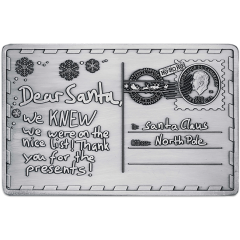 Dear Santa,
we KNEW
we were on the
nice list! Thank
you for the
presents!
HO HO HO
To: Santa Claus
North Pole